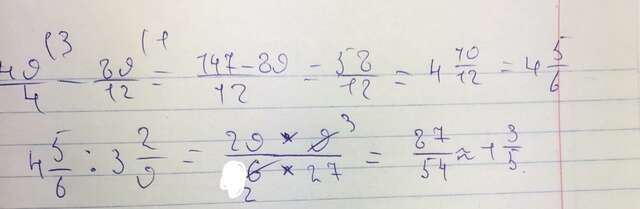 49/4 (3 - 89/12 (1 = 147-89/12 = 58/12 = 4 10/12 = 4 5/6
4 5/6 : 3 2/9 = 29 * 9 3/6 * 27 2 = 87/54 ≈ 1 3/5.